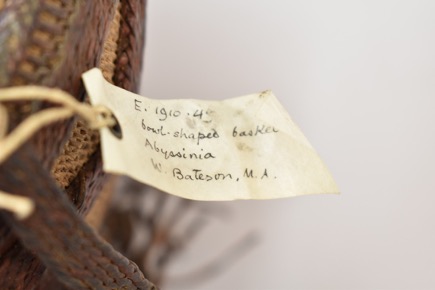 E. 1910.45
bowl-shaped basket
Abyssinia
W. Bateson, M.A.